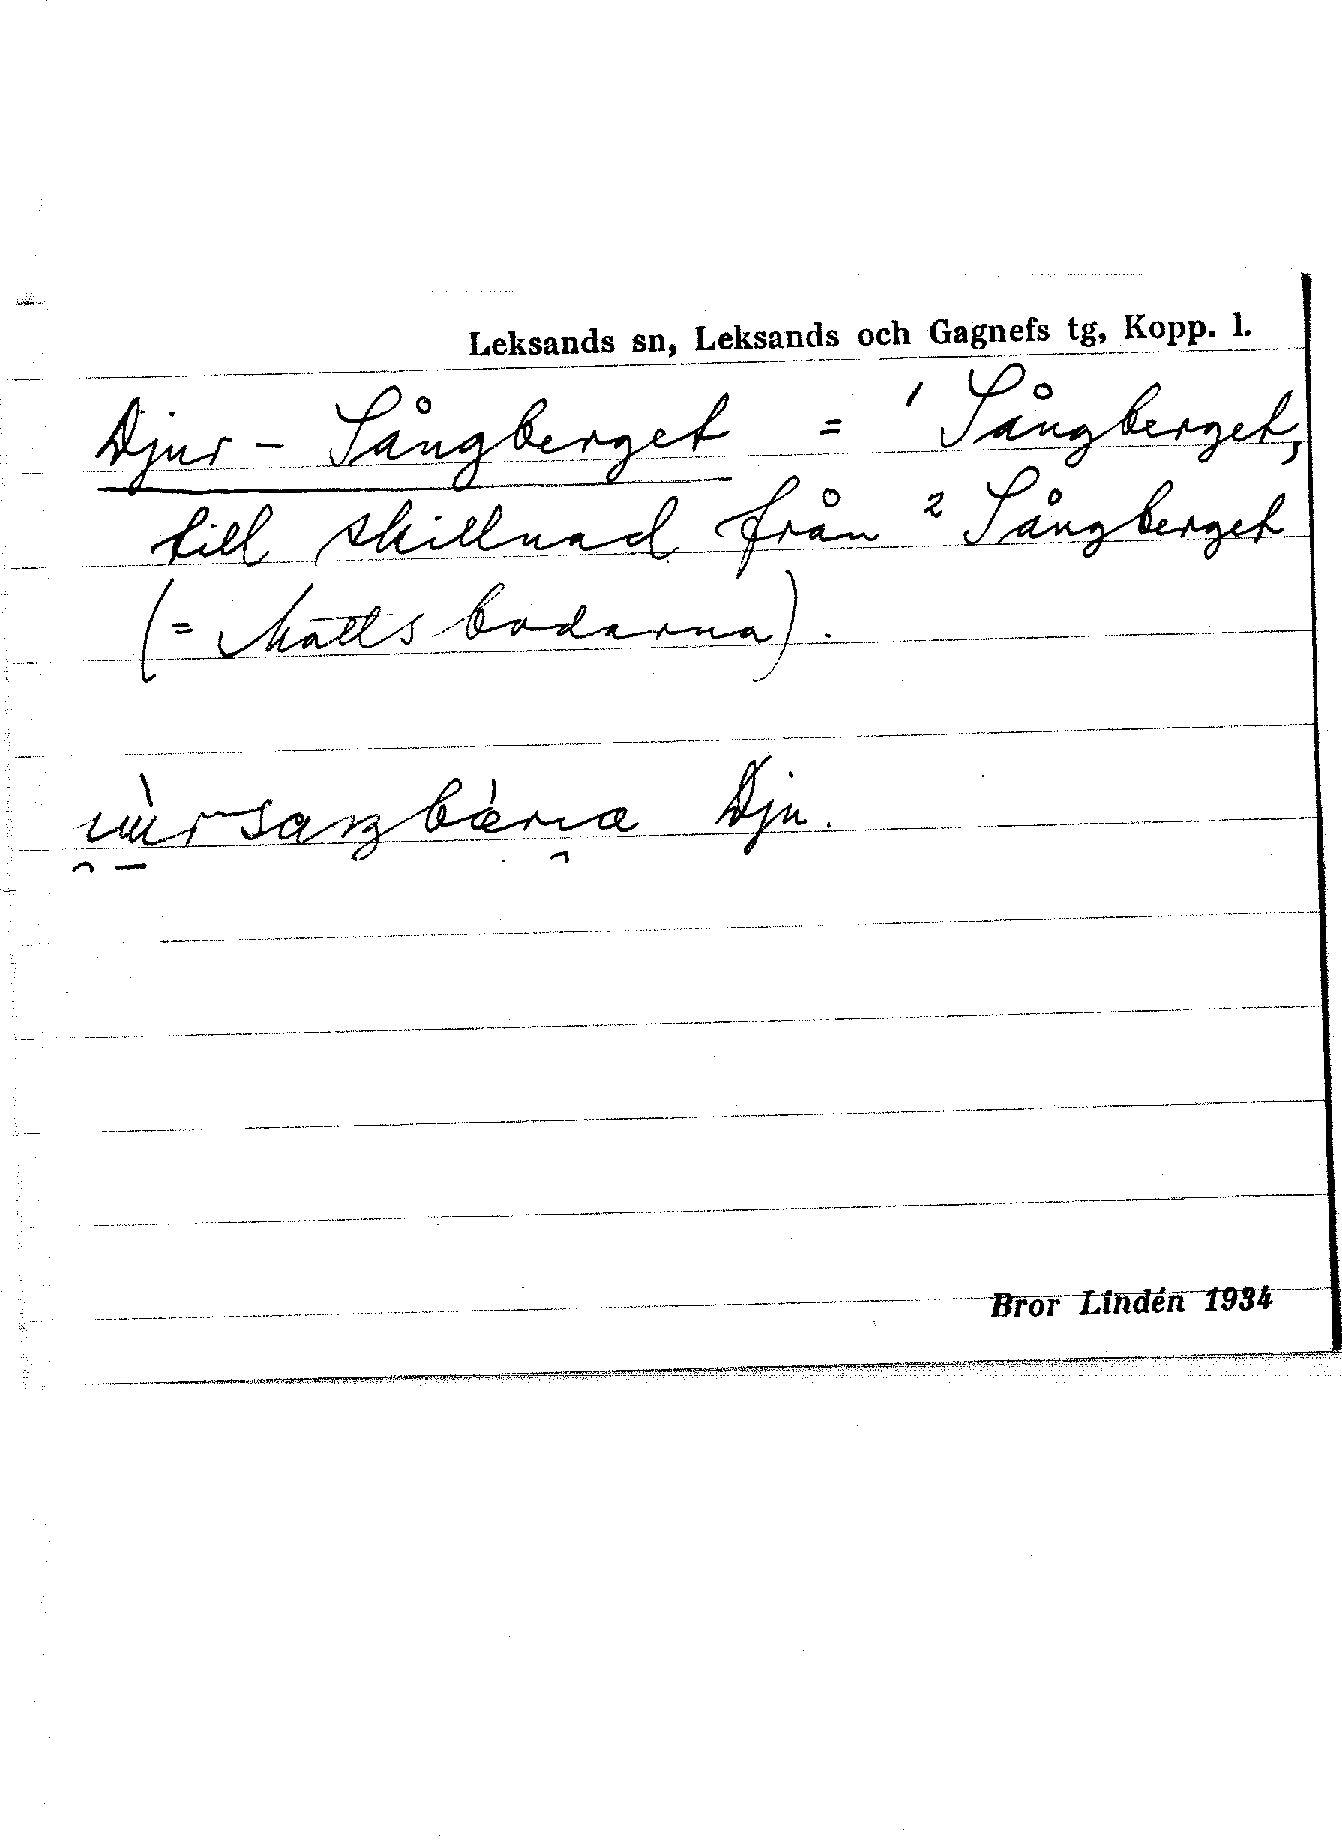 Leksands sn, Leksands och Gagnefs tg, Kopp. l.
Djur - Sångberget = ¹ Sångberget,
till skillnad från ² Sångberget
(= Mattsbodarna).
Dju.
Bror Lindén 1934